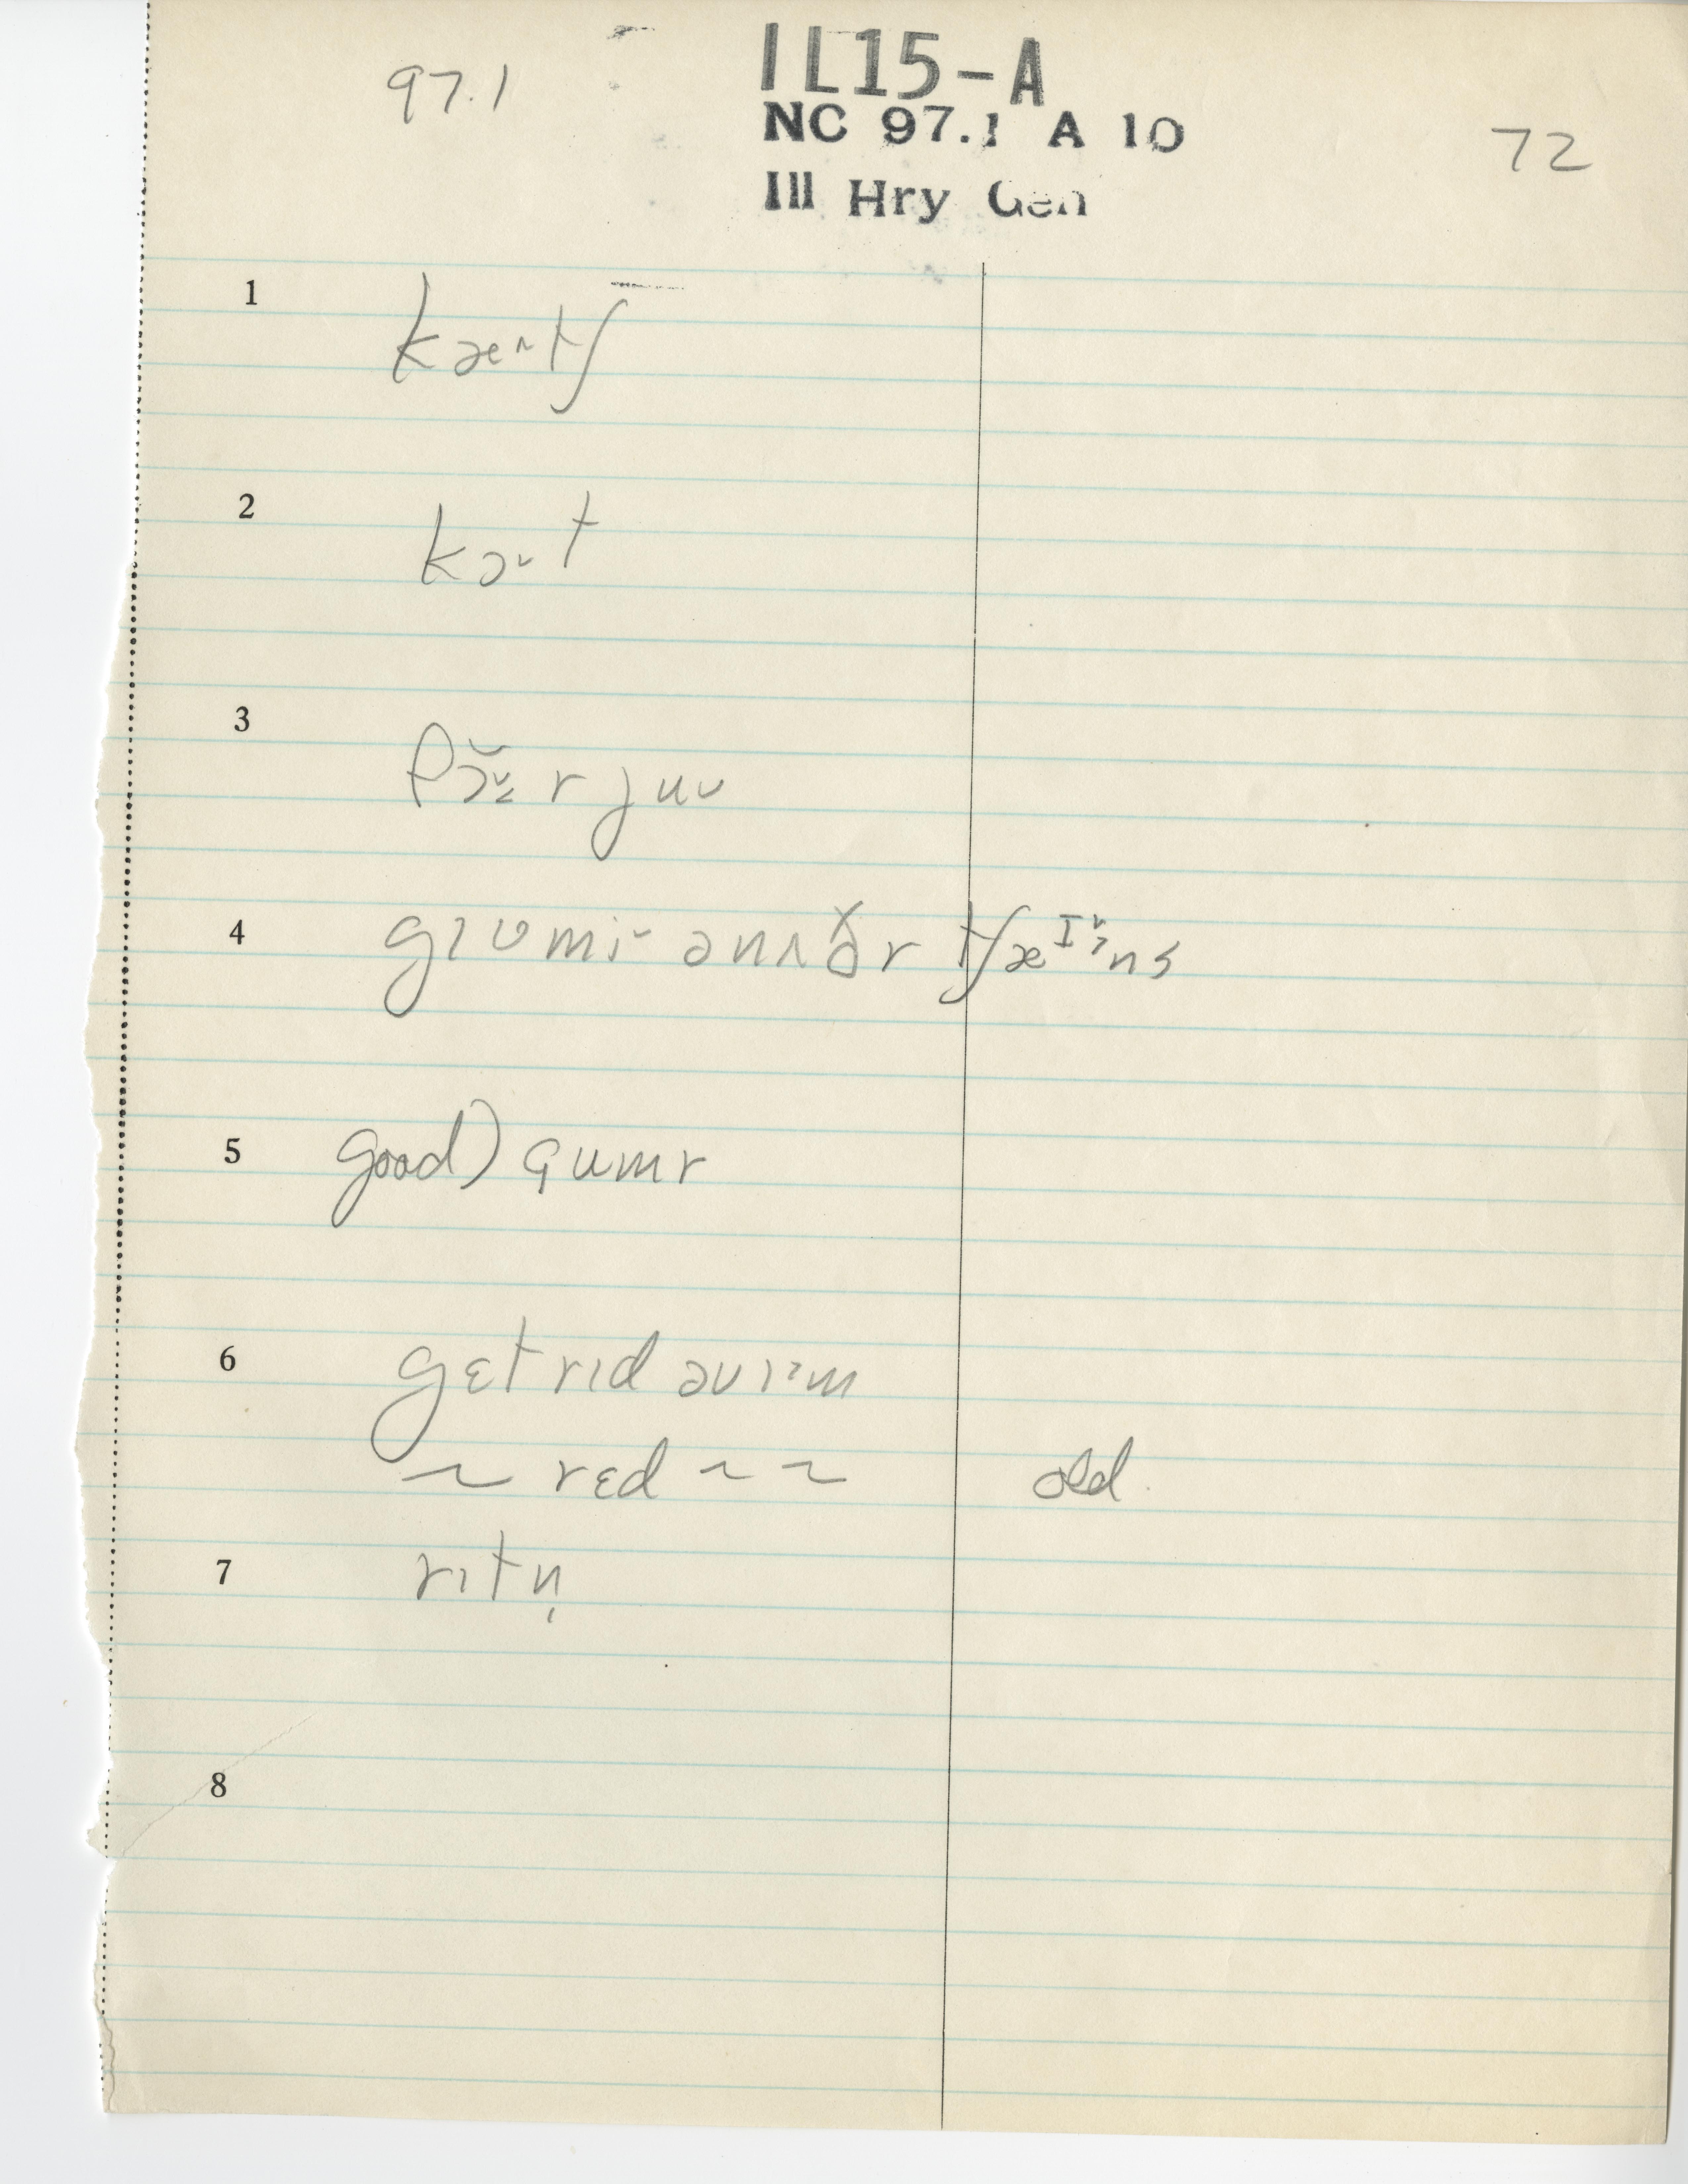 97.1
IL15-A
NC 97.1 A 10
Ill Hry Gen
72
1 kæ^tʃ
2 kɔ˞t
3
4 gɪʋmi˞ ənʌðər tʃæᴵ˞ns
5 good) gumr
6 gɛt rɪd əvɪ˞m
~ rɛd ~ ~ old
7 rɪtn̩
8